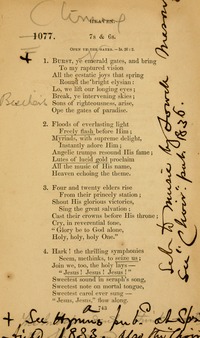 HEAVEN.
1077. 7s & 6s.
1. BURST, ye emerald gates, and bring
To my raptured vision
All the ecstatic joys that spring
Round the bright elysian:
Lo, we lift our longing eyes;
Break, ye intervening skies;
Sons of righteousness, arise,
Ope the gates of paradise.
2. Floods of everlasting light
Freely flash before Him;
Myriads, with supreme delight,
Instantly adore Him;
Angelic trumps resound His fame;
Lutes of lucid gold proclaim
All the music of His name,
Heaven echoing the theme.
3. Four and twenty elders rise
From their princely station;
Shout His glorious victories,
Sing the great salvation;
Cast their crowns before His throne;
Cry, in reverential tone,
"Glory be to God alone,
Holy, holy, holy One."
4. Hark! the thrilling symphonies
Seem, methinks, to seize us;
Join we, too, the holy lays—
"Jesus! Jesus! Jesus!"
Sweetest sound in seraph's song,
Sweetest note on mortal tongue,
Sweetest carol ever sung—
"Jesus, Jesus," flow along.
743
Set to music by Lowell Mason
See "Choir" pub. 1836.
+ See Hymns pub. at